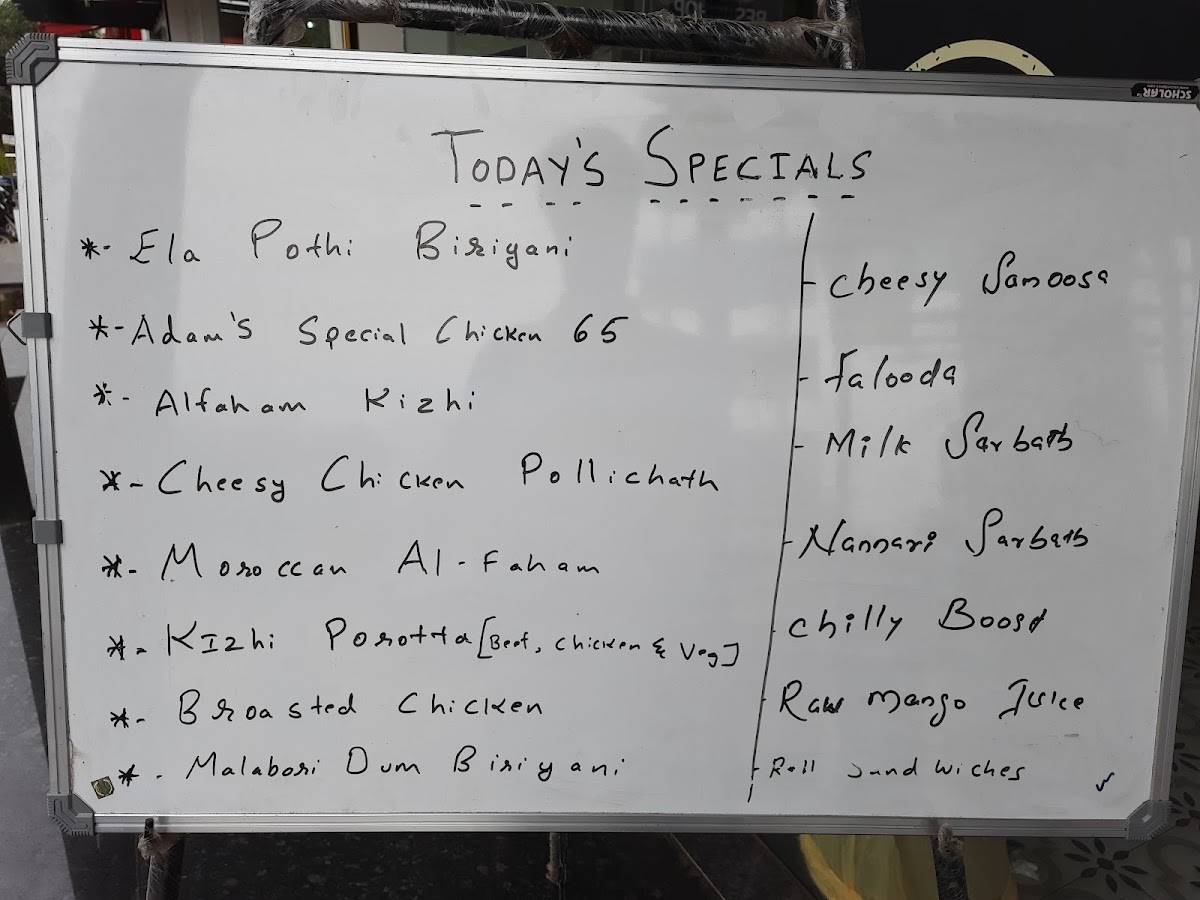 SCHOLAR
TODAY'S SPECIALS
*- Ela Pothi Biriyani
*- Adam's Special Chicken 65
*- Alfaham Kizhi
*- Cheesy Chicken Pollichath
*- Moroccan Al-Faham
*- KIzhi Porotta [Beef, Chicken & Veg]
*- Broasted Chicken
*- Malabari Dum Biriyani
- Cheesy Samoosa
- Falooda
- Milk Sarbath
- Nannari Sarbath
- Chilly Boost
- Raw mango Juice
- Roll sandwiches